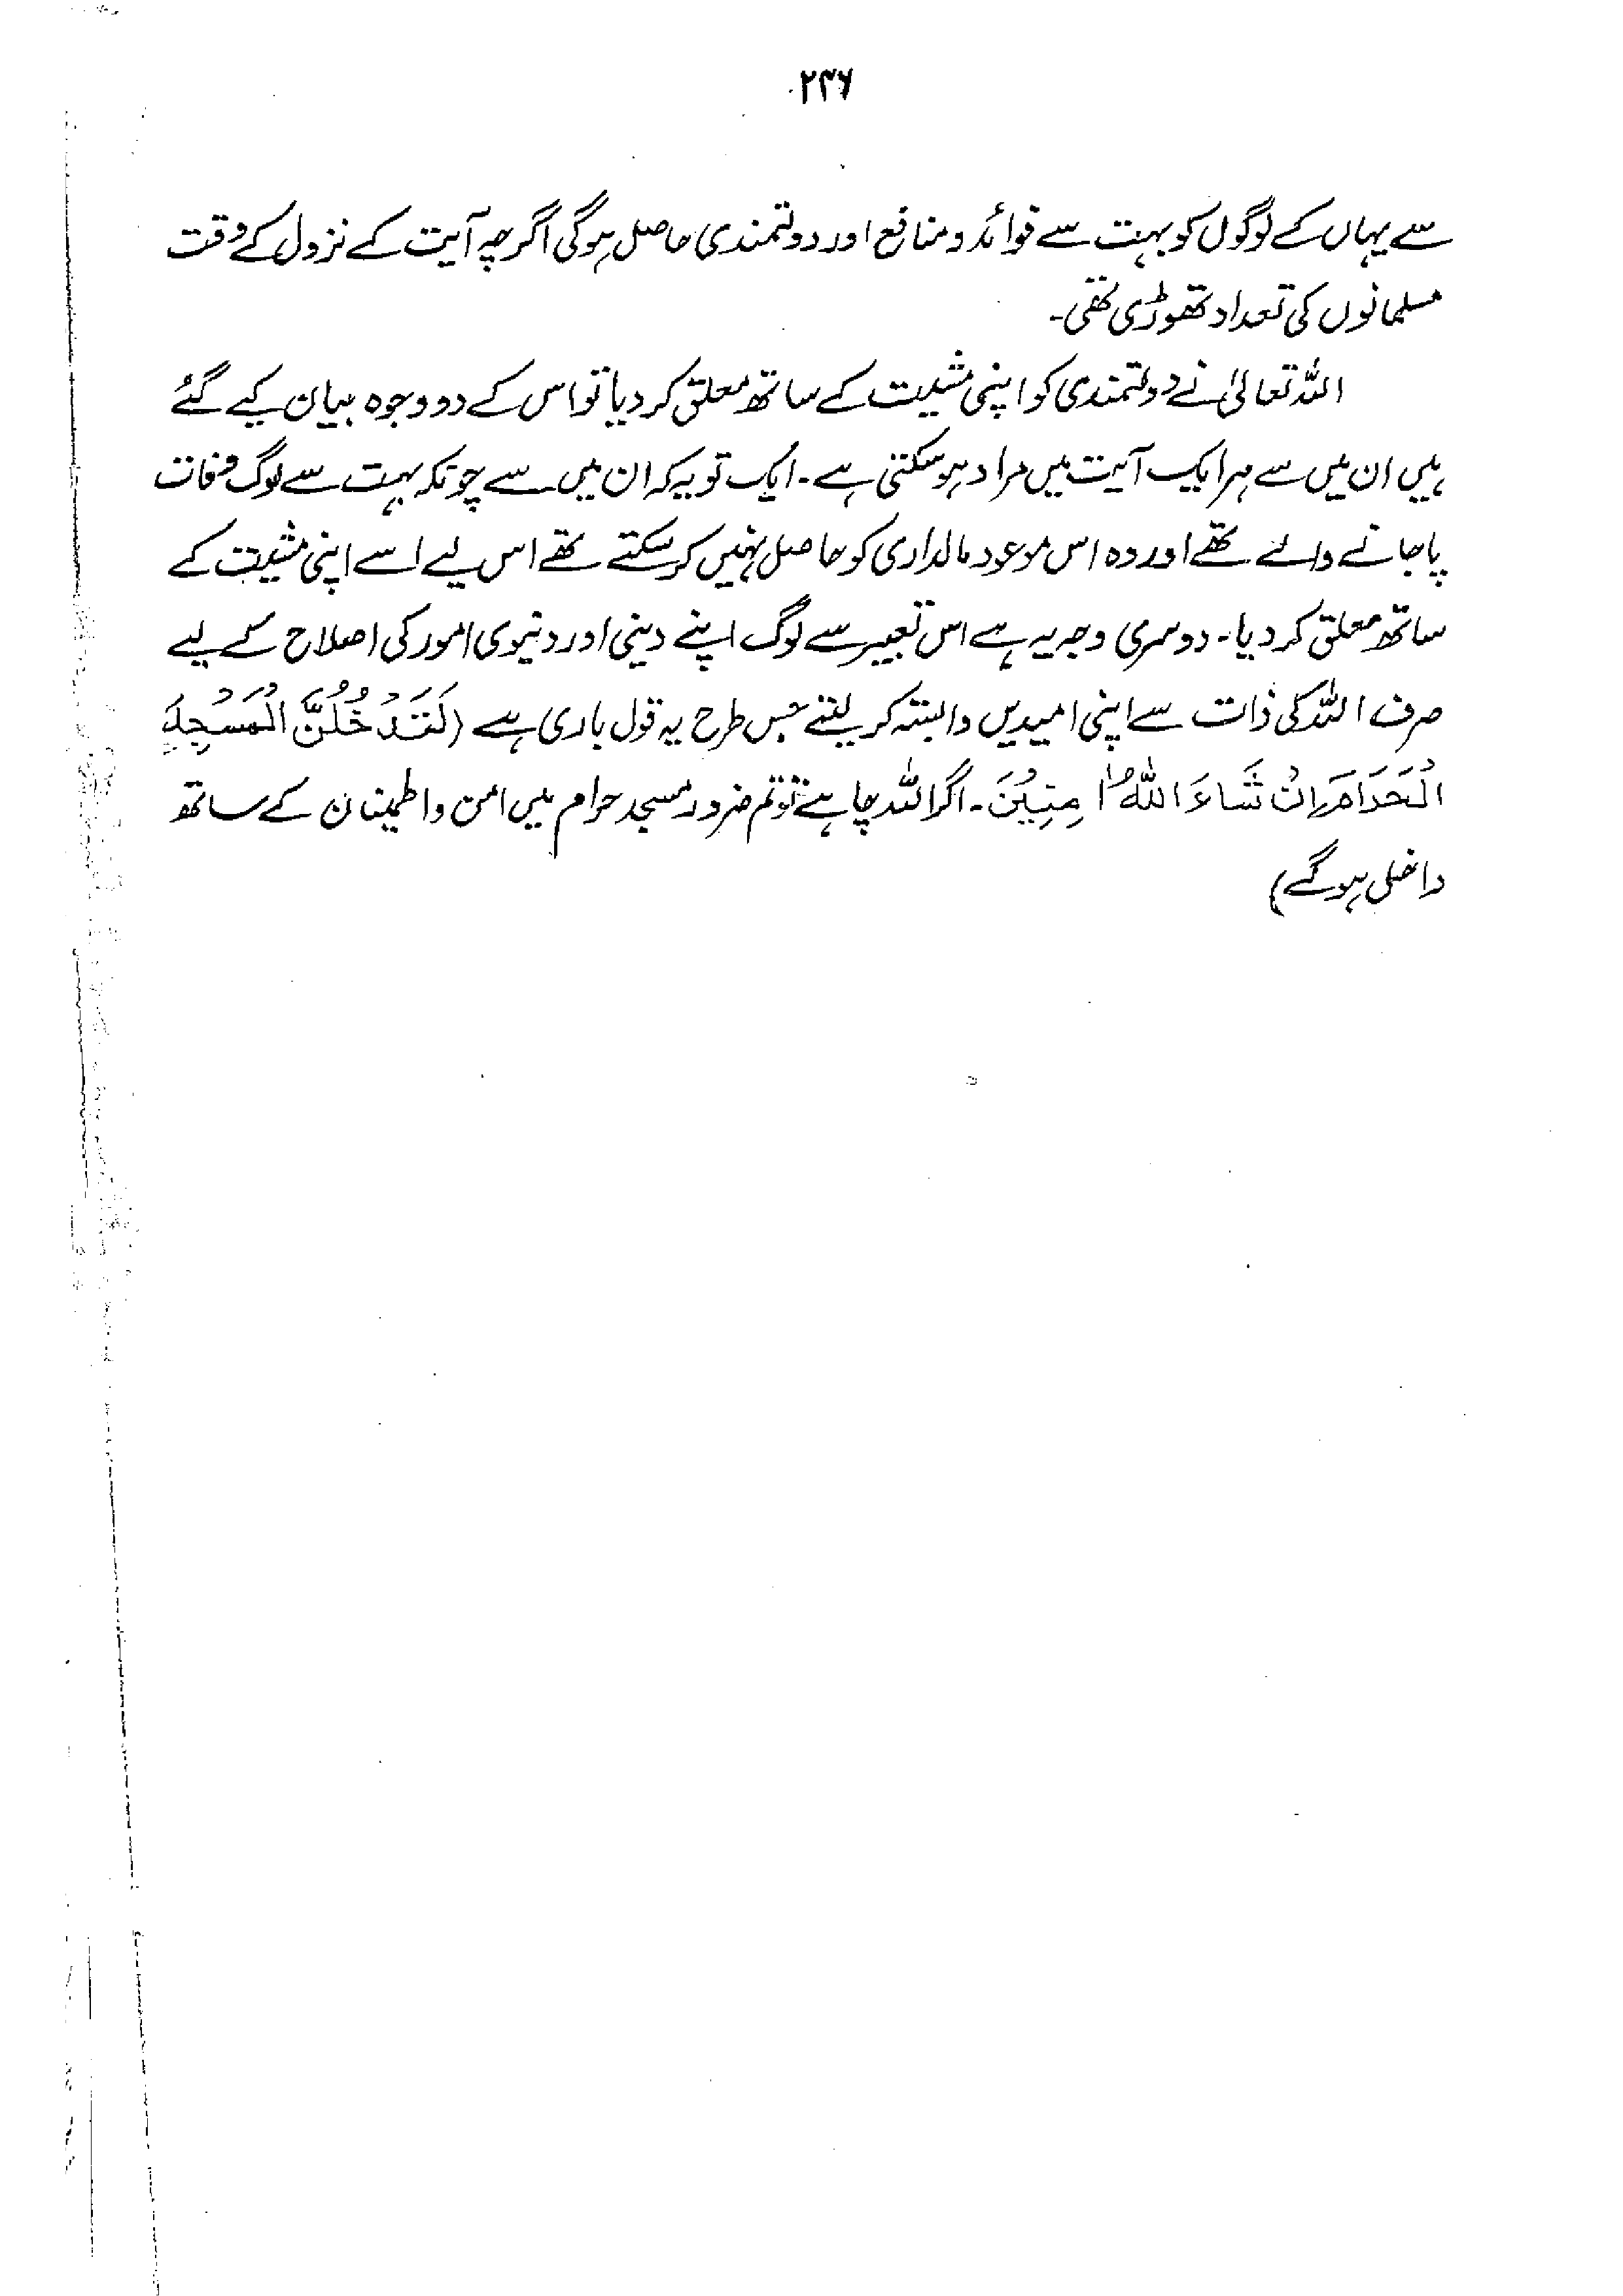 ۲۴۶
سے یہاں کے لوگوں کو بہت سے فوائد و منافع اور دولتمندی حاصل ہوگی اگرچہ آیت کے نزول کے وقت
مسلمانوں کی تعداد تھوڑی تھی۔
اللہ تعالیٰ نے دولتمندی کو اپنی مشیت کے ساتھ معلق کر دیا تو اس کے دو وجوہ بیان کیے گئے
ہیں ان میں سے ہر ایک آیت میں مراد ہو سکتی ہے۔ ایک تو یہ کہ ان میں سے چونکہ بہت سے لوگ وفات
پا جانے والے تھے اور وہ اس موعود مالداری کو حاصل نہیں کر سکتے تھے اس لیے اسے اپنی مشیت کے
ساتھ معلق کر دیا۔ دوسری وجہ یہ ہے اس تعبیر سے لوگ اپنے دینی اور دنیوی امور کی اصلاح کے لیے
صرف اللہ کی ذات سے اپنی امیدیں وابستہ کر لیتے جس طرح یہ قول باری ہے (لَتَدْخُلُنَّ الْمَسْجِدَ
الْحَرَامَ اِنْ شَاءَ اللّٰهُ اٰمِنِيْنَ۔ اگر اللہ چاہے تو تم ضرور مسجد حرام میں امن و اطمینان کے ساتھ
داخل ہو گے)